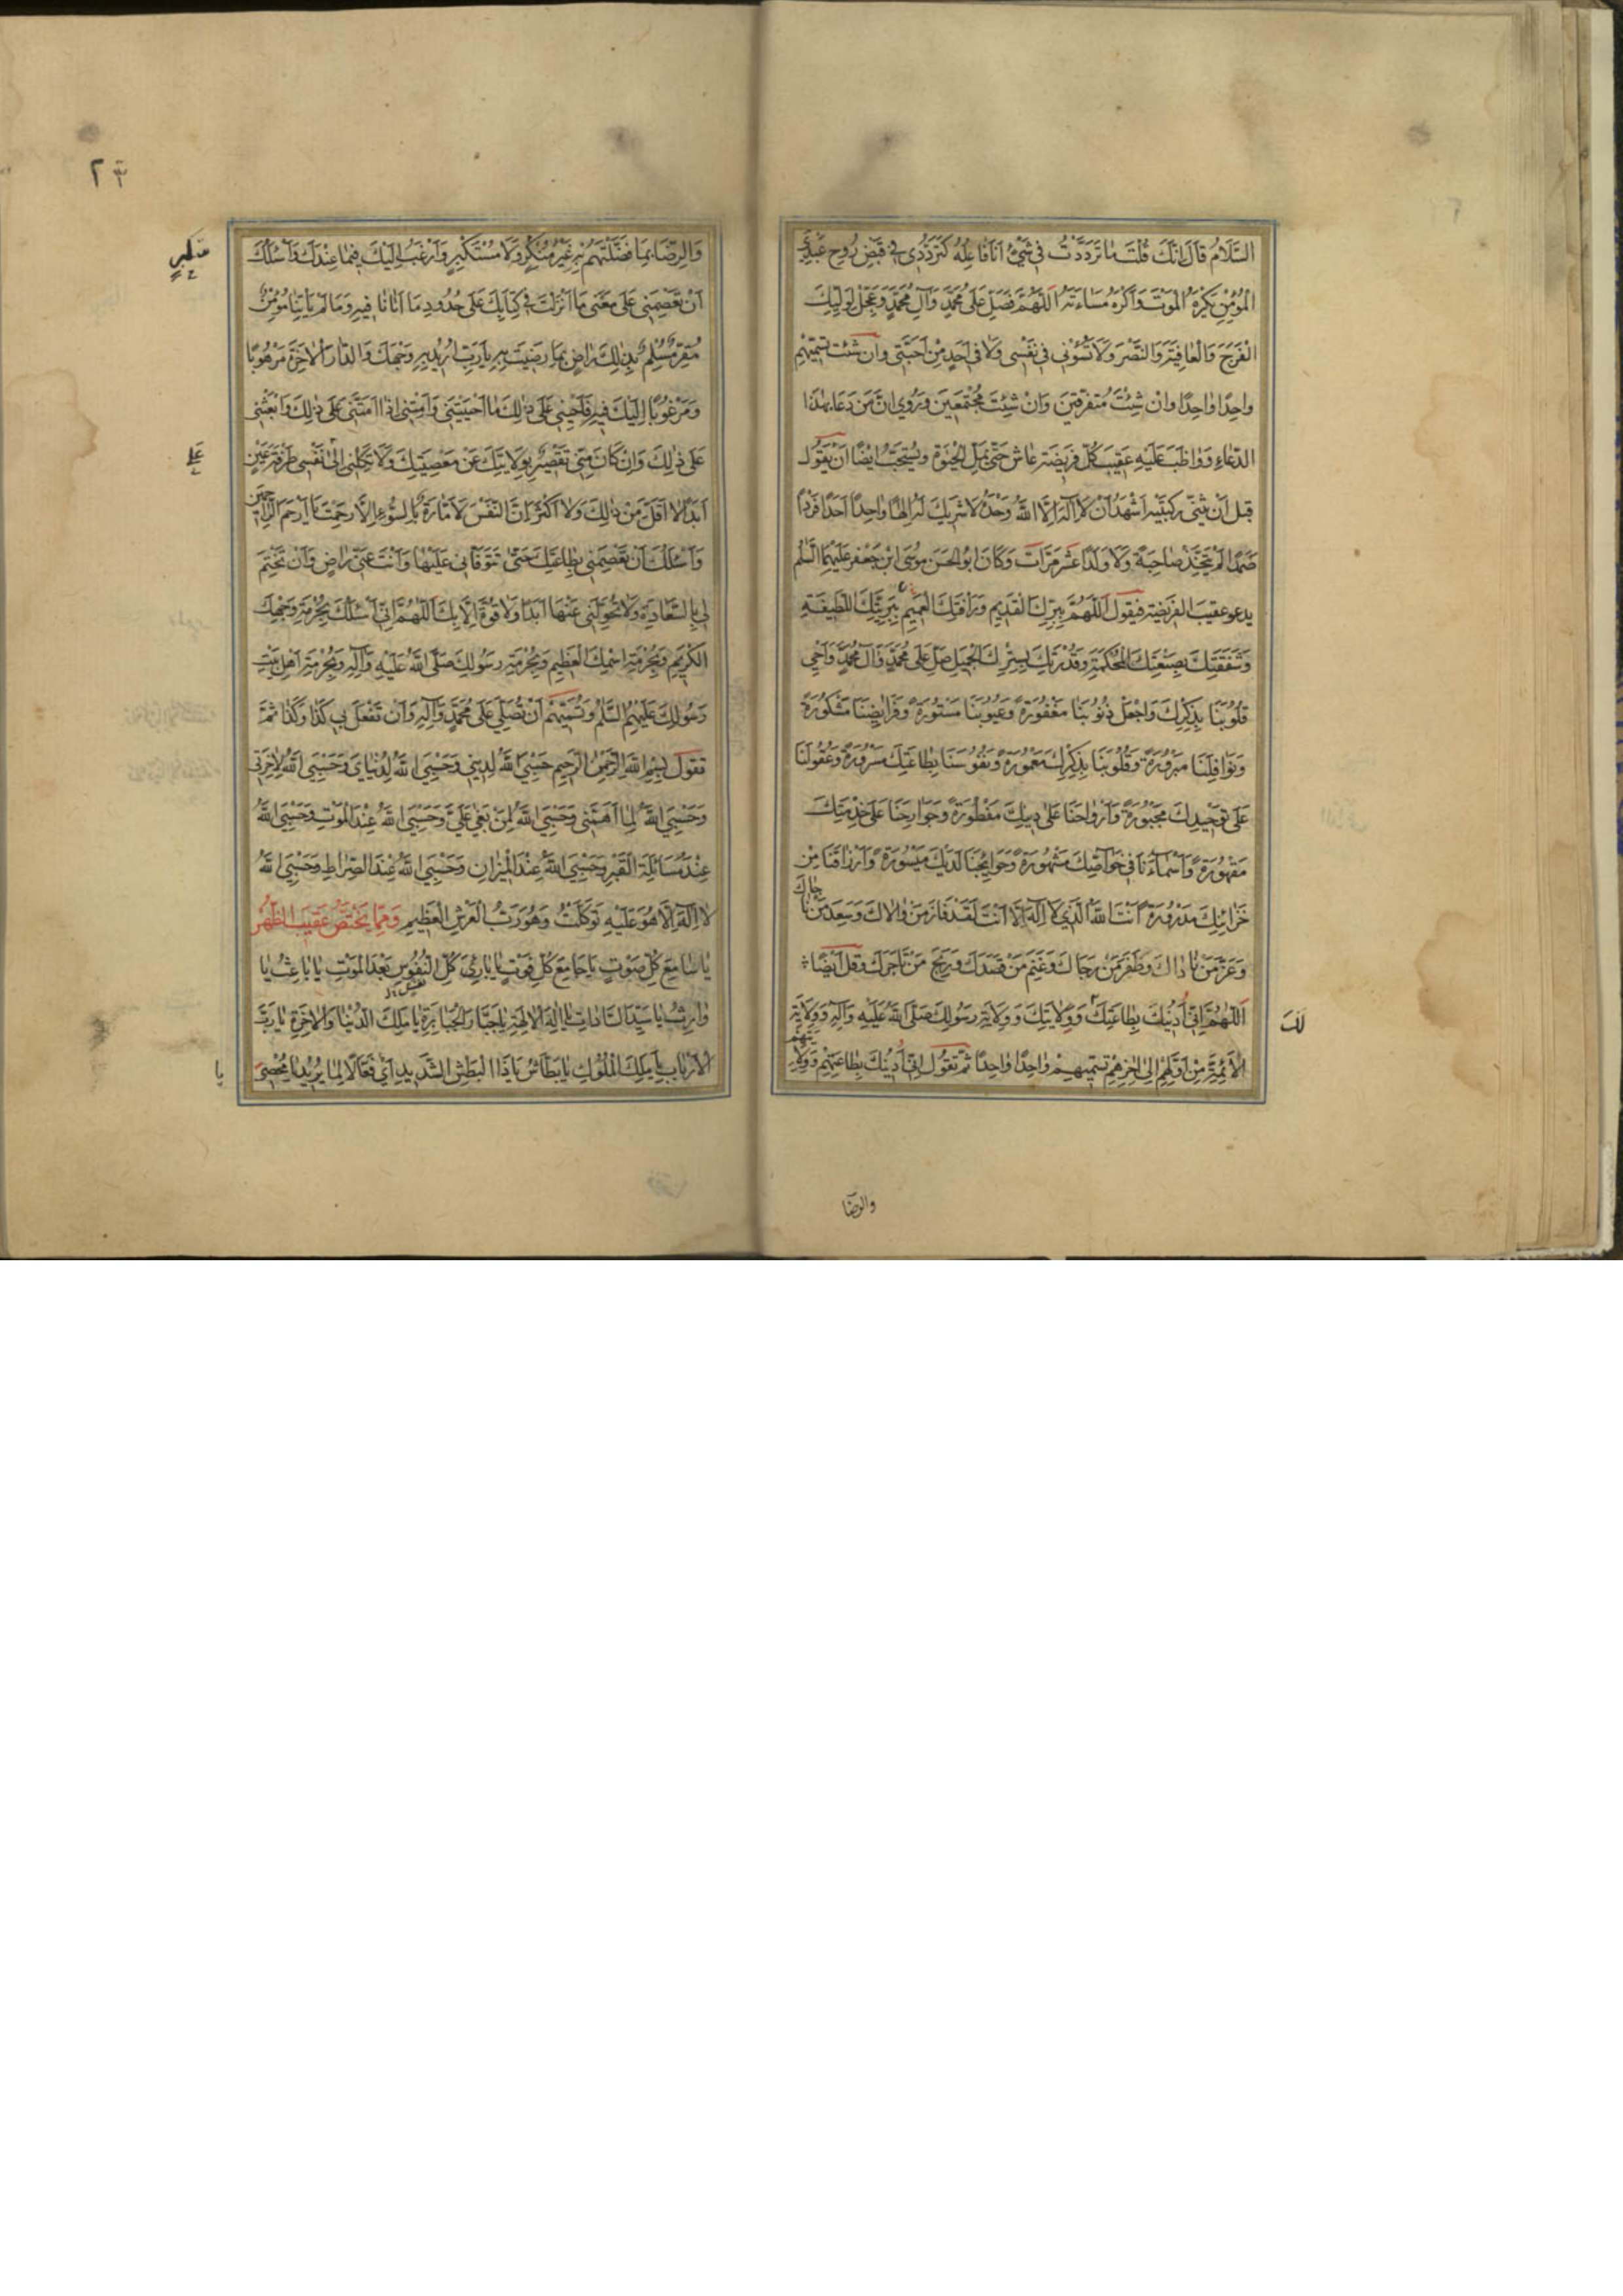 السَّلَامُ قَالَ اِنَّكَ قُلْتَ مٰا تَرَدَّدْتُ فِي شَيْءٍ اَنَا فٰاعِلُهُ كَتَرَدُّدِي فِي قَبْضِ رُوحِ عَبْدِيَ
الْمُؤْمِنِ يَكْرَهُ الْمَوْتَ وَاَكْرَهُ مَسَاءَتَهُ اَللّٰهُمَّ فَصَلِّ عَلٰى مُحَمَّدٍ وَآلِ مُحَمَّدٍ وَعَجِّلْ لِوَلِيِّكَ
الْفَرَجَ وَالْعٰافِيَةَ وَالنَّصْرَ وَلَا تَسُؤْنِي فِي نَفْسِي وَلَا فِي اَحَدٍ مِنْ اَحِبَّتِي وان شئت تسميتهم
واحِدًا وٰاحِدًا وَاِنْ شِئْتَ مُتَفَرِّقِينَ وَاِنْ شِئْتَ مُجْتَمِعِينَ وَرُوِيَ اَنَّ مَنْ دَعَا بِهٰذَا
الدُّعٰاءِ وَوٰاظَبَ عَلَيْهِ عَقِيبَ كُلِّ فَرِيضَةٍ عَاشَ حَتّٰى يَمَلَّ الْحَيٰوةَ وَيُسْتَحَبُّ اَيْضًا اَنْ يَقُولَ
قَبْلَ اَنْ يَثْنِيَ رُكْبَتَيْهِ اَشْهَدُ اَنْ لَا اِلٰهَ اِلَّا اللّٰهُ وَحْدَهُ لَا شَرِيكَ لَهُ اِلٰهًا وٰاحِدًا اَحَدًا فَرْدًا
صَمَدًا لَمْ يَتَّخِذْ صٰاحِبَةً وَلَا وَلَدًا عَشْرَ مَرَّاتٍ وَكَانَ اَبُو الْحَسَنِ مُوسَى ابْنُ جَعْفَرٍ عَلَيْهِمَا السَّلٰمُ
يدعو عقيبَ الفَرِيضَةِ فَيَقُولُ اَللّٰهُمَّ بِبِرِّكَ الْقَدِيمِ وَرَأْفَتِكَ الْعَمِيمِ بِبَرِيَّتِكَ اللَّطِيفَةِ
وَشَفَقَتِكَ بِصَنْعَتِكَ الْمُحْكَمَةِ وَقُدْرَتِكَ بِسِتْرِكَ الْجَمِيلِ صَلِّ عَلٰى مُحَمَّدٍ وَآلِ مُحَمَّدٍ وَاَحْيِ
قُلُوبَنَا بِذِكْرِكَ وَاجْعَلْ ذُنُوبَنَا مَغْفُورَةً وَعُيُوبَنَا مَسْتُورَةً وَفَرَائِضَنَا مَشْكُورَةً
وَنَوَافِلَنَا مَبْرُورَةً وَقُلُوبَنَا بِذِكْرِكَ مَعْمُورَةً وَنُفُوسَنَا بِطَاعَتِكَ مَسْرُورَةً وَعُقُولَنَا
عَلٰى تَوْحِيدِكَ مَجْبُورَةً وَاَرْوٰاحَنَا عَلٰى دِينِكَ مَفْطُورَةً وَجَوَارِحَنَا عَلٰى خِدْمَتِكَ
مَقْهُورَةً وَاَسْمَاءَنَا فِي خَوَاصِّكَ مَشْهُورَةً وَحَوَائِجَنَا لَدَيْكَ مَيْسُورَةً وَاَرْزٰاقَنَا مِنْ
خَزَائِنِكَ مَدْرُورَةً اَنْتَ اللّٰهُ الَّذِي لَا اِلٰهَ اِلَّا اَنْتَ لَقَدْ فَازَ مَنْ وٰالَاكَ وَسَعِدَ مَنْ نَاجٰاكَ
وَعَزَّ مَنْ نَادٰاكَ وَظَفِرَ مَنْ رَجَاكَ وَغَنِمَ مَنْ قَصَدَكَ وَرَبِحَ مَنْ تَاجَرَكَ وَقُلْ اَيْضًا
اَللّٰهُمَّ اِنِّي اَدِينُكَ بِطٰاعَتِكَ وَوِلَايَتِكَ وَوِلَايَةِ رَسُولِكَ صَلَّى اللّٰهُ عَلَيْهِ وَآلِهِ وَوِلَايَةِ
لَكَ
الْاَئِمَّةِ مِنْ اَوَّلِهِمْ اِلٰى اٰخِرِهِمْ تسميهم وٰاحِدًا وٰاحِدًا ثُمَّ تَقُولُ اِنِّي اَدِينُكَ بِطَاعَتِهِمْ وَوِلَايَتِهِمْ
والرِّضَا
٢٣
وَالرِّضَا بِمَا فَضَّلْتَهُمْ بِهِ غَيْرَ مُنْكِرٍ وَلَا مُسْتَكْبِرٍ وَاَرْغَبُ اِلَيْكَ فِيمَا عِنْدَكَ وَاَسْئَلُكَ
اَنْ تَعْصِمَنِي عَلٰى مَعْنَى مَا اَنْزَلْتَ فِي كِتَابِكَ عَلٰى حُدُودِ مَا اَتَانَا فِيهِ وَمَا لَمْ يَأْتِنَا مُؤْمِنٌ
مُقِرٌّ مُسَلِّمٌ بِذٰلِكَ رَاضٍ بِمَا رَضِيتَ بِهِ يَا رَبِّ اُرِيدُ بِهِ وَجْهَكَ وَالدَّارَ الْاٰخِرَةَ مَرْهُوبًا
وَمَرْغُوبًا اِلَيْكَ فِيهِ فَاَحْيِنِي عَلٰى ذٰلِكَ مَا اَحْيَيْتَنِي وَاَمِتْنِي اِذَا اَمَتَّنِي عَلٰى ذٰلِكَ وَابْعَثْنِي
عَلٰى ذٰلِكَ وَاِنْ كَانَ مِنِّي تَقْصِيرٌ بِوِلَايَتِكَ عَنْ مَعْصِيَتِكَ وَلَا تَكِلْنِي اِلٰى نَفْسِي طَرْفَةَ عَيْنٍ
اَبَدًا لَا اَقَلَّ مِنْ ذٰلِكَ وَلَا اَكْثَرَ اِنَّ النَّفْسَ لَاَمَّارَةٌ بِالسُّوءِ اِلَّا رَحِمْتَ يَا اَرْحَمَ الرَّاحِمِينَ
وَاَسْئَلُكَ اَنْ تَعْصِمَنِي بِطَاعَتِكَ حَتّٰى تَتَوَفَّانِي عَلَيْهَا وَاَنْتَ عَنِّي رَاضٍ وَاَنْ تَخْتِمَ
لِي بِالسَّعَادَةِ وَلَا تُحَوِّلَنِي عَنْهَا اَبَدًا وَلَا قُوَّةَ اِلَّا بِكَ اَللّٰهُمَّ اِنِّي اَسْئَلُكَ بِحُرْمَةِ وَجْهِكَ
الْكَرِيمِ وَبِحُرْمَةِ اسْمِكَ الْعَظِيمِ وَبِحُرْمَةِ رَسُولِكَ صَلَّى اللّٰهُ عَلَيْهِ وَآلِهِ وَبِحُرْمَةِ اَهْلِ بَيْتِ
رَسُولِكَ عَلَيْهِمُ السَّلٰمُ وَتُسَمِّيهِمْ اَنْ تُصَلِّيَ عَلٰى مُحَمَّدٍ وَآلِهِ وَاَنْ تَفْعَلَ بِي كَذَا وَكَذَا ثُمَّ
تَقُولُ بِسْمِ اللّٰهِ الرَّحْمٰنِ الرَّحِيمِ حَسْبِيَ اللّٰهُ لِدِينِي وَحَسْبِيَ اللّٰهُ لِدُنْيَايَ وَحَسْبِيَ اللّٰهُ لِاٰخِرَتِي
وَحَسْبِيَ اللّٰهُ لِمَا اَهَمَّنِي وَحَسْبِيَ اللّٰهُ لِمَنْ بَغٰى عَلَيَّ وَحَسْبِيَ اللّٰهُ عِنْدَ الْمَوْتِ وَحَسْبِيَ اللّٰهُ
عِنْدَ مُسَائَلَةِ الْقَبْرِ وَحَسْبِيَ اللّٰهُ عِنْدَ الْمِيزَانِ وَحَسْبِيَ اللّٰهُ عِنْدَ الصِّرَاطِ وَحَسْبِيَ اللّٰهُ
لَا اِلٰهَ اِلَّا هُوَ عَلَيْهِ تَوَكَّلْتُ وَهُوَ رَبُّ الْعَرْشِ الْعَظِيمِ وَمِمَّا يَخْتَصُّ عَقِيبَ الظُّهْرِ
يَا سَامِعَ كُلِّ صَوْتٍ يَا جَامِعَ كُلِّ فَوْتٍ يَا بَارِئَ كُلِّ النُّفُوسِ بَعْدَ الْمَوْتِ يَا بَاعِثُ يَا
وٰارِثُ يَا سَيِّدَ السَّادَاتِ يَا اِلٰهَ الْاٰلِهَةِ يَا جَبَّارَ الْجَبَابِرَةِ يَا مَلِكَ الدُّنْيَا وَالْاٰخِرَةِ يَا رَبَّ
الْاَرْبَابِ يَا مَلِكَ الْمُلُوكِ يَا بَطَّاشُ يَا ذَا الْبَطْشِ الشَّدِيدِ اَيْ فَعَّالًا لِمَا يُرِيدُ يَا مُحْصِيَ